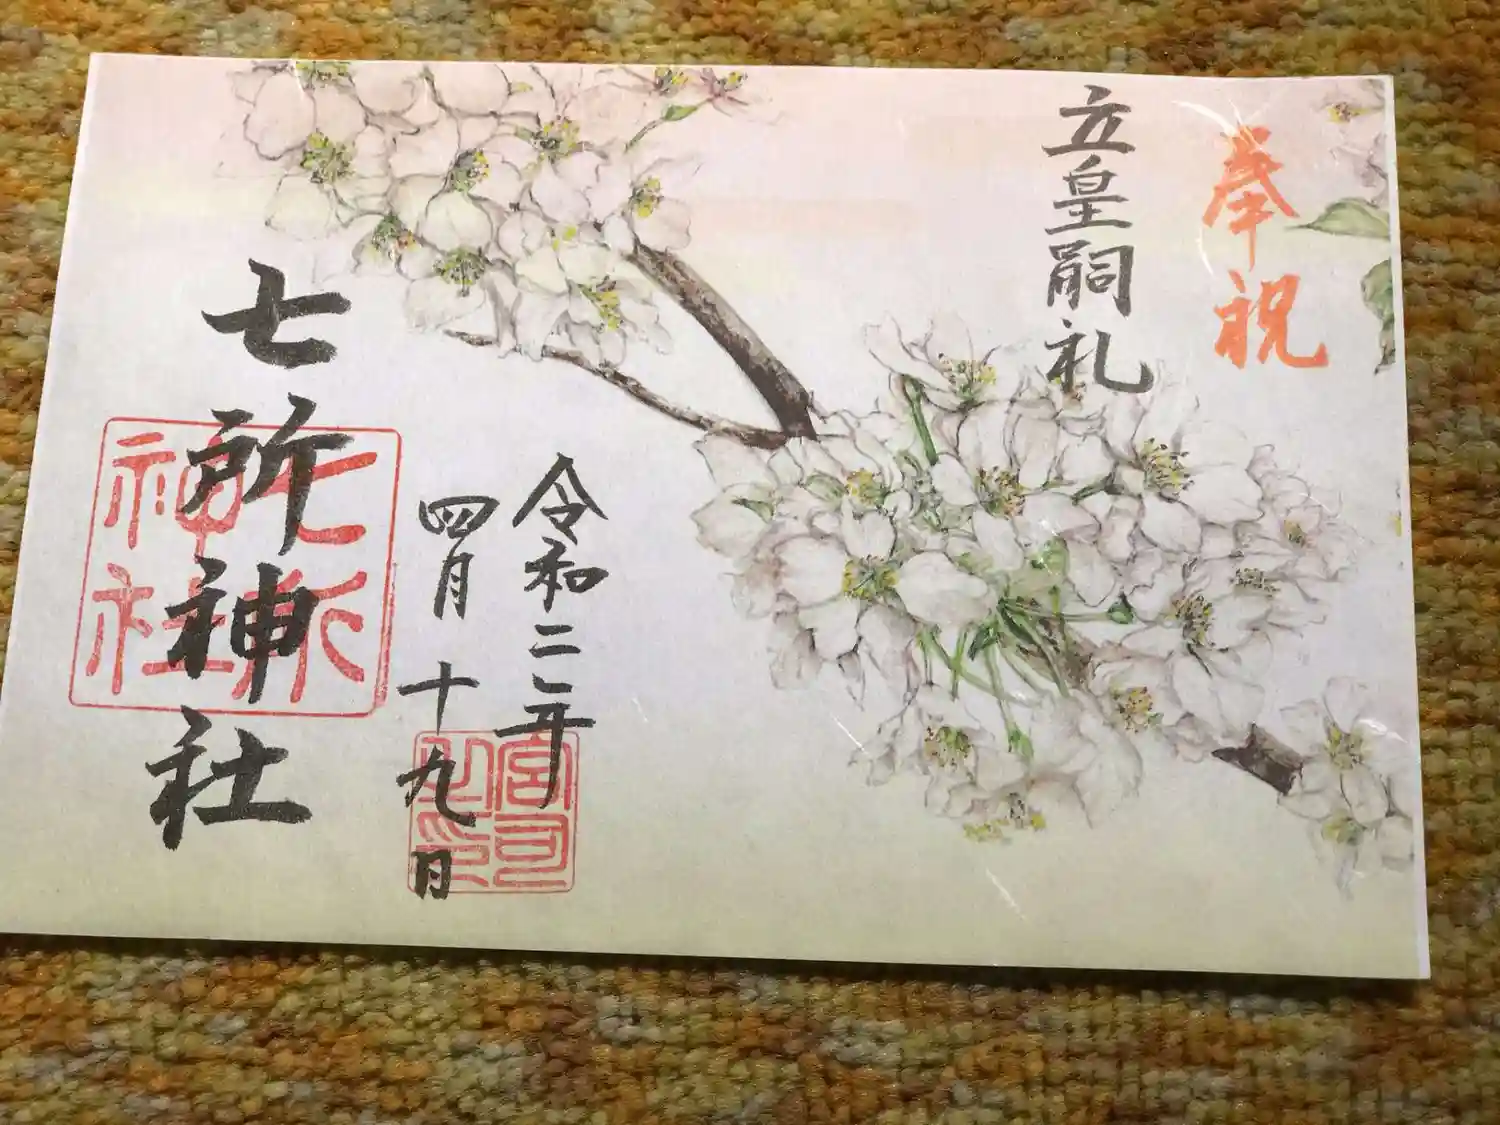 奉祝
立皇嗣礼
令和二年
四月十九日
七所神社
七所
神社
宮司
之印